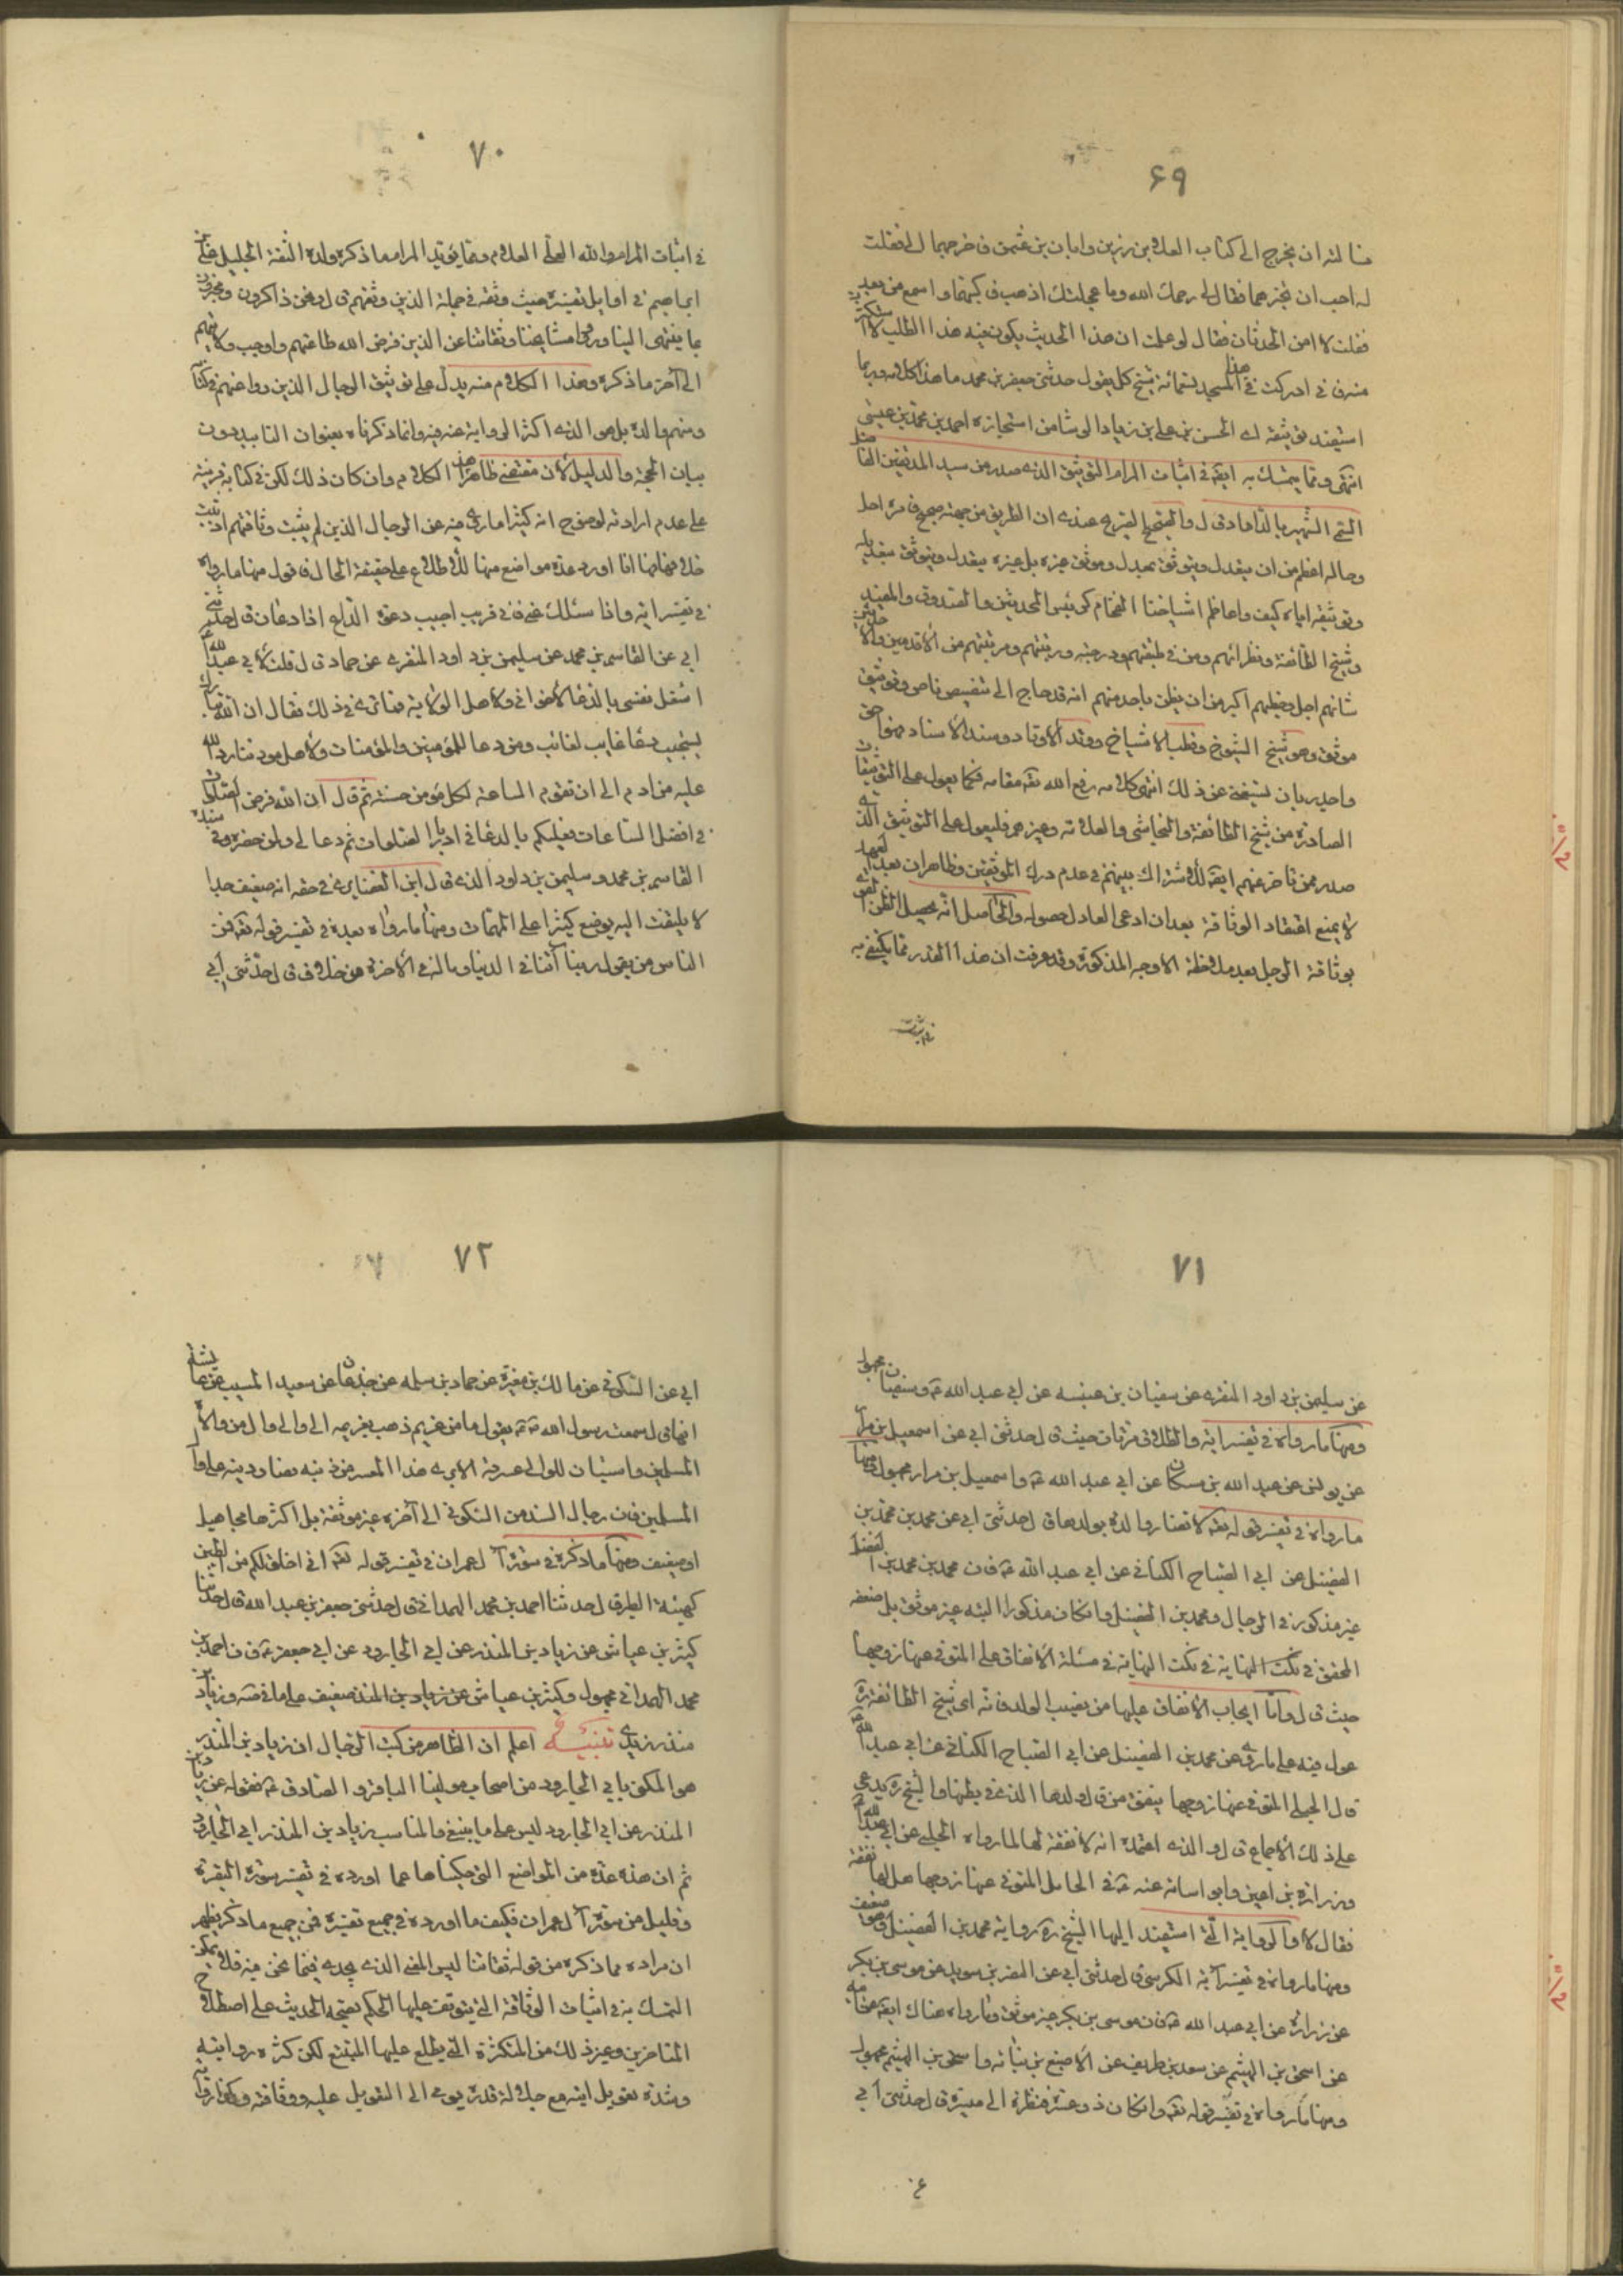 ۶۹
فسالته ان يخرج الى كتاب العلاء بن رزين وابان بن عثمن فاخرجهما الى فقلت
له احب ان تجيزهما فقال لى رحمك الله وما عجلتك اذهب فاكتبهما واسمع من بعد
فقلت لا امن الحدثان فقال لو علمت ان هذا الحديث يكون فيه هذا الطلب لاستكثرت
منه فانى ادركت فى هذا المسجد تسعمائة شيخ كل يقول حدثنى جعفر بن محمد ما هذا كلامه وربما
استفيد توثيقه اى الحسن بن على بن زياد الوشا من استجازة احمد بن محمد بن عيسى
انتهى ومما يتمسك به ايضا فى اثبات المرام التوثيق الذى صدر من سيد المدققين
الشهير بالداماد قال والصحيح الصريح عندى ان الطريق من جهته صحيح فامره اجل
وحاله اعظم من ان يتعدل ويتوثق بمعدل وموثق غيره بل غيره يتعدل ويتوثق بتعديله
وتوثيقه اياه كيف واعاظم اشياخنا الفخام كرئيس المحدثين والصدوق والمفيد
وشيخ الطائفة ونظرائهم ومن فى طبقتهم ودرجتهم ورتبتهم ومرتبتهم من الاقدمين والاحدثين
شانهم اجل وخطبهم اكبر من ان يظن باحد منهم انه قد حاج الى تنصيص ناص وتوثيق
موثق وهو شيخ الشيوخ وقطب الاشياخ ووتد الاوتاد وسند الاسناد فهو احق
واجدر بان يستغنى عن ذلك انتهى كلامه رفع الله تعه مقامه فكما يعول على التوثيقات
الصادرة من شيخ الطائفة والنجاشى والعلامة وغيرهم فليعول على التوثيق الذى
صدر ممن تاخر عنهم ايضا لاشتراك بينهم فى عدم درك الموثقين وظاهر ان بعد العهد
لا يمنع اعتقاد الوثاقة بعد ان ادعى العادل حصوله والحاصل انه يحصل الظن القوى
بوثاقة الرجل بعد ملاحظة الاوجه المذكورة وقد عرفت ان هذا القدر مما يكتفى به
فى اثبات
۷۰
فى اثبات المرام والله العلى العلام ومما يؤيد المرام ما ذكره ولده الثقة الجليل على بن
ابراهيم فى اوايل تفسيره حيث وثقه فى جملة الذين وثقهم قال ونحن ذاكرون ومخبرون
بما ينتهى الينا ورواه مشايخنا وثقاتنا عن الذين فرض الله طاعتهم واوجب ولايتهم
الى آخر ما ذكره وهذا الكلام منه يدل على توثيق الرجال الذين روى عنهم فى كتابه
ومنهم والده بل هو الذى اكثر الرواية عنه فيه وانما ذكرناه بعنوان التاييد دون
بيان الحجة والدليل لان مقتضى ظاهر هذا الكلام وان كان ذلك لكن فى كتابه قرينة
على عدم ارادته لوضوح انه كثيرا ما روى فيه عن الرجال الذين لم يثبت وثاقتهم او ثبت
خلافها وها انا اورد عدة مواضع منها للاطلاع على حقيقة الحال فاقول منها ما رواه
فى تفسير اية واذا سئلك عنى فانى قريب اجيب دعوة الداع اذا دعان قال حدثنى
ابى عن القاسم بن محمد عن سليمن بن داود المنقرى عن حماد قال قلت لابى عبد الله ع
اشغل نفسى بالدعاء لاخوانى ولاهل الولاية فما ترى فى ذلك فقال ان الله تبارك
يستجيب دعاء غايب لغائب ومن دعا للمؤمنين والمؤمنات ولاهل مودتنا رد الله
عليه من ادم الى ان تقوم الساعة لكل مؤمن حسنة ثم قال ان الله فرض الصلوات
فى افضل الساعات فعليكم بالدعاء فى ادبار الصلوات ثم دعا لى ولمن حضره وفى سنده
القاسم بن محمد وسليمن بن داود الذى قال ابن الغضايرى فى حقه انه ضعيف جدا
لا يلتفت اليه يوضع كثيرا على المهمات ومنها ما رواه بعيده فى تفسير قوله تعه فمن
الناس من يقول ربنا آتنا فى الدنيا وماله فى الاخرة من خلاق قال حدثنى ابى
۷۱
عن سليمن بن داود المنقرى عن سفيان بن عيينه عن ابى عبد الله ع وسفيان مجهول
ومنها ما رواه فى تفسير اية والطلاق مرتان حيث قال حدثنى ابى عن اسمعيل بن مرار
عن يونس عن عبد الله بن مسكان عن ابى عبد الله ع واسمعيل بن مرار مجهول ومنها
ما رواه فى تفسير قوله تعه لا تضار والدة بولدها قال حدثنى ابى عن محمد بن محمد بن
الفضيل عن ابى الصباح الكنانى عن ابى عبد الله ع فان محمد بن محمد بن الفضيل
غير مذكور فى الرجال ومحمد بن الفضيل وانكان مذكورا البته غير موثق بل ضعفه
المحقق فى نكت النهاية فى نكت النهاية فى مسئلة الانفاق على المتوفى عنها زوجها
حيث قال واما ايجاب الانفاق عليها من نصيب الولد فانه اى شيخ الطائفة ره
عول فيه على ما روى عن محمد بن الفضيل عن ابى الصباح الكنانى عن ابى عبد الله ع
قال الحبلى المتوفى عنها زوجها ينفق من مال ولدها الذى فى بطنها والشيخ ره يدعى
على ذلك الاجماع قال والذى اعتمده انه لا نفقة لها لما رواه الحلبى عن ابى عبد الله ع
وزرارة بن اعين وابو اسامة عنه ع فى الحامل المتوفى عنها زوجها هل لها نفقة
فقال لا والرواية التى استند اليها الشيخ ره رواية محمد بن الفضيل وهو ضعيف
ومنها ما رواه فى تفسير آية الكرسى قال حدثنى ابى عن النضر بن سويد عن موسى بن بكر
عن زرارة عن ابى عبد الله ع فان موسى بن بكر غير موثق وما رواه هناك ايضا عن ابيه
عن اسحق بن الهيثم عن سعد بن طريف عن الاصبغ بن نباته واسحق بن الهيثم مجهول
ومنها ما رواه فى تفسير قوله تعه وانكان ذو عسرة فنظرة الى ميسرة قال حدثنى ابى
۷۲
ابى عن السكونى عن مالك بن مغيرة عن حماد بن سلمه عن جدعان عن سعيد المسيب عن عايشة
انها قال سمعت رسول الله ص يقول ما من غريم ذهب بغريمه الى وال من ولاة
المسلمين واستبان للوالى عسرته الا برى هذا المعسر من دينه وصار دينه على والى
المسلمين فان رجال السند من السكونى الى آخره غير موثقة بل اكثرها مجاهيل
او ضعيف ومنها ما ذكره فى سورة آل عمران فى تفسير قوله تعه انى اخلق لكم من الطين
كهيئة الطير قال حدثنا احمد بن محمد الهمدانى قال حدثنى جعفر بن عبد الله قال حدثنا
كثير بن عياش عن زياد بن المنذر عن ابى الجارود عن ابى جعفر ع فان احمد بن
محمد الهمدانى مجهول وكثير بن عياش عن زياد بن المنذر ضعيف على ما فى ست وزياد بن
منذر زيدى تنبيه اعلم ان الظاهر من كتب الرجال ان زياد بن المنذر
هو المكنى بابى الجارود من اصحاب مولينا الباقر والصادق ع فقوله عن زياد بن
المنذر عن ابى الجارود ليس على ما ينبغى والمناسب زياد بن المنذر ابى الجارود
ثم ان هذه عدة من المواضع التى حكيناها عما اورده فى تفسير سورة البقرة
وقليل من سورة آل عمران فكيف ما اورده فى جميع تفسيره فمن جميع ما ذكر يظهر
ان مراده مما ذكره من قوله ثقاتنا ليس المعنى الذى يجدى فيما نحن فيه فلا يمكن
التمسك به فى اثبات الوثاقة التى يتوقف عليها الحكم بصحة الحديث على اصطلاح
المتاخرين وغير ذلك من المتكثرة التى يطلع عليها المتتبع لكن كثرة روايته
وشدة تعويل ابنه مع جلالة قدره يومى الى التعويل عليه ووثاقته وكذا رواية